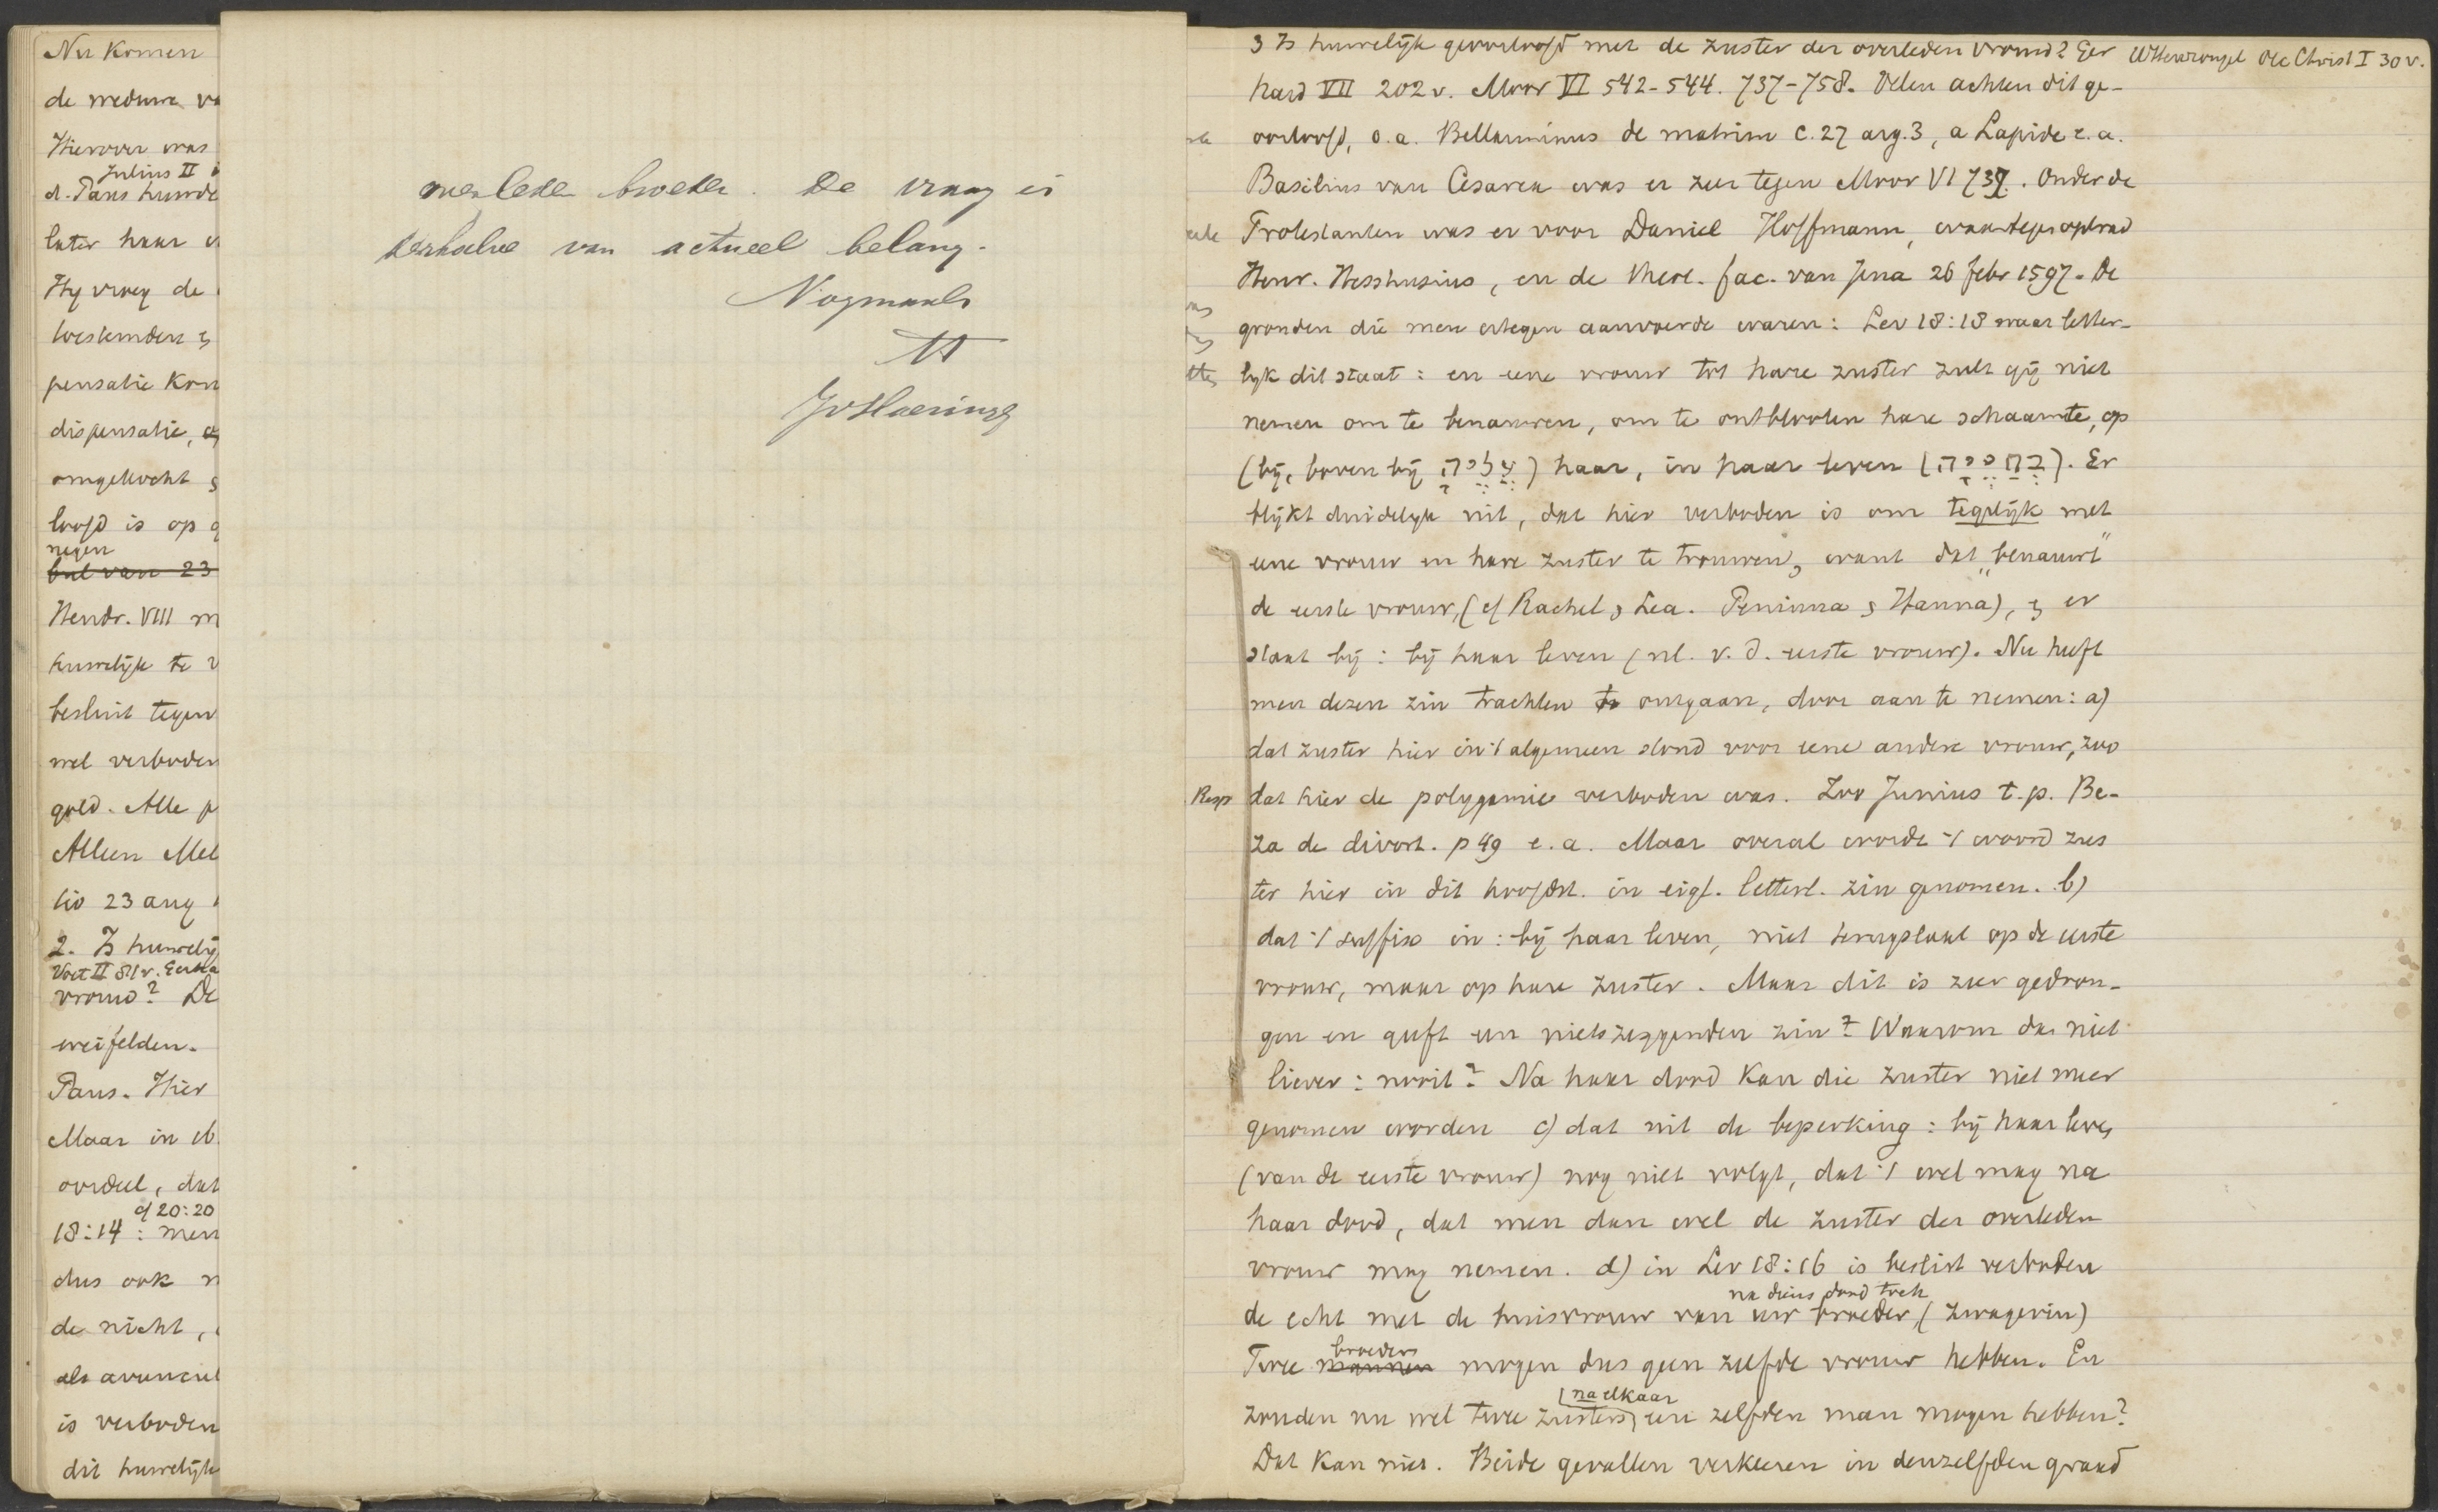 Nu komen
de weduwe va
Hierover was
Julius II
d. Paus huwde
later haar
Hy vroeg de
toestemden &
pensatie kon
dispensatie,
omgekocht &
loofd is op g
negen
bul van 23
Hendr. VIII m
huwelijk te v
besluit tegen
wel verboden
geld. Alle p
Alleen Mel
lio 23 aug
2. Is huwelij
Voet II 81 v. Gerha
vrouw? De
weifelden.
Paus. Hier
Maar in
oordeel, dat
cf 20:20
18:14 : men
dus ook n
de nicht,
als avuncul
is verboden
dit huwelijk
overleden broeder. De vraag is
derhalve van actueel belang.
Nogmaals
tt
JvHaeringen
3 Is huwelijk geoorloofd met de zuster der overleden vrouw? Ger Wttewrongel Oec Christ I 30 v.
hard VII 202 v. Moor VI 542-544. 737-758. Velen achten dit ge-
oorloofd, o.a. Bellarminus de matrim c. 27 arg. 3, a Lapide e.a.
Basilius van Cesarea was er zeer tegen Moor VI 737. Onder de
Protestanten was er voor Daniel Hoffmann, waartegen optrad
Henr. Hesshusius, en de theol. fac. van Jena 26 febr 1597. De
gronden die men ertegen aanvoerde waren: Lev 18:18 waar letter-
lyk dit staat: en eene vrouw tot hare zuster zult gij niet
nemen om te benauwen, om te ontblooten hare schaamte, op
(bij, boven bij עָלֶיהָ) haar, in haar leven (בְּחַיֶּיהָ). Er
blijkt duidelyk uit, dat hier verboden is om tegelijk met
eene vrouw en hare zuster te trouwen, want dat „benauwt"
de eerste vrouw, (cf Rachel & Lea. Peninna & Hanna), & er
staat bij: bij haar leven (nl. v. d. eerste vrouw). Nu heeft
men dezen zin trachten te omgaan, door aan te nemen: a)
dat zuster hier in 't algemeen stond voor eene andere vrouw, zoo
Resp dat hier de polygamie verboden was. Zoo Junius t.p. Be-
za de divort. p 49 e.a. Maar overal wordt 't woord zus
ter hier in dit hoofdst. in eigl. letterl. zin genomen. b)
dat 't suffix in: bij haar leven, niet terugslaat op de eerste
vrouw, maar op hare zuster. Maar dit is zeer gedron-
gen en geeft een nietszeggenden zin? Waarom dan niet
liever: nooit? Na haar dood kan die zuster niet meer
genomen worden c) dat uit de beperking: bij haar leven
(van de eerste vrouw) nog niet volgt, dat 't wel mag na
haar dood, dat men dan wel de zuster der overleden
vrouw mag nemen. d) in Lev 18:16 is beslist verboden
na diens dood
de echt met de huisvrouw van uw broeder, (zwagerin)
broeders
Twee mannen mogen dus geen zelfde vrouw hebben. En
(na elkaar
zouden nu wel twee zusters, een zelfden man mogen hebben?
Dat kan niet. Beide gevallen verkeeren in denzelfden graad